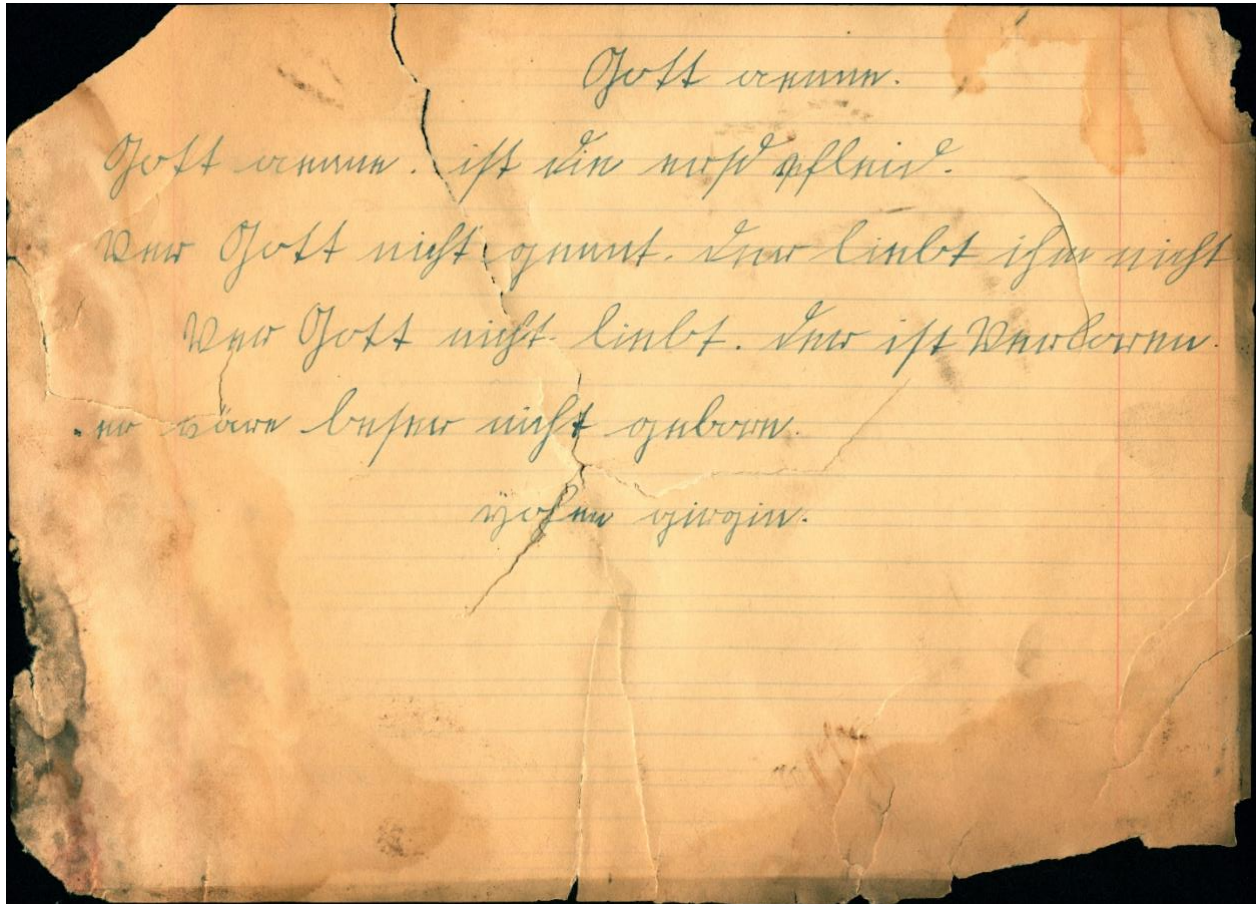 Gott
Gott ist die ersd pfleid.
Wer Gott nicht gennt. der liebt ihm nicht
Wer Gott nicht liebt. der ist Verloren.
er wäre beser nicht gebore.